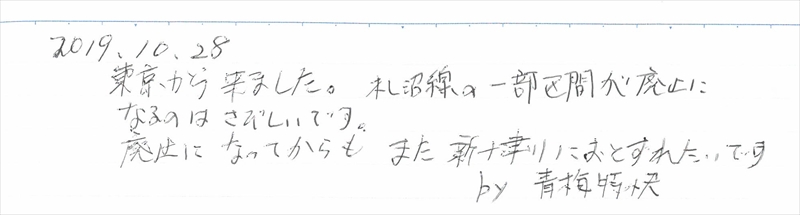 2019.10.28
東京から来ました。札沼線の一部区間が廃止に
なるのはさびしいです。
廃止になってからもまた新十津川におとずれたいです
by 青梅特快